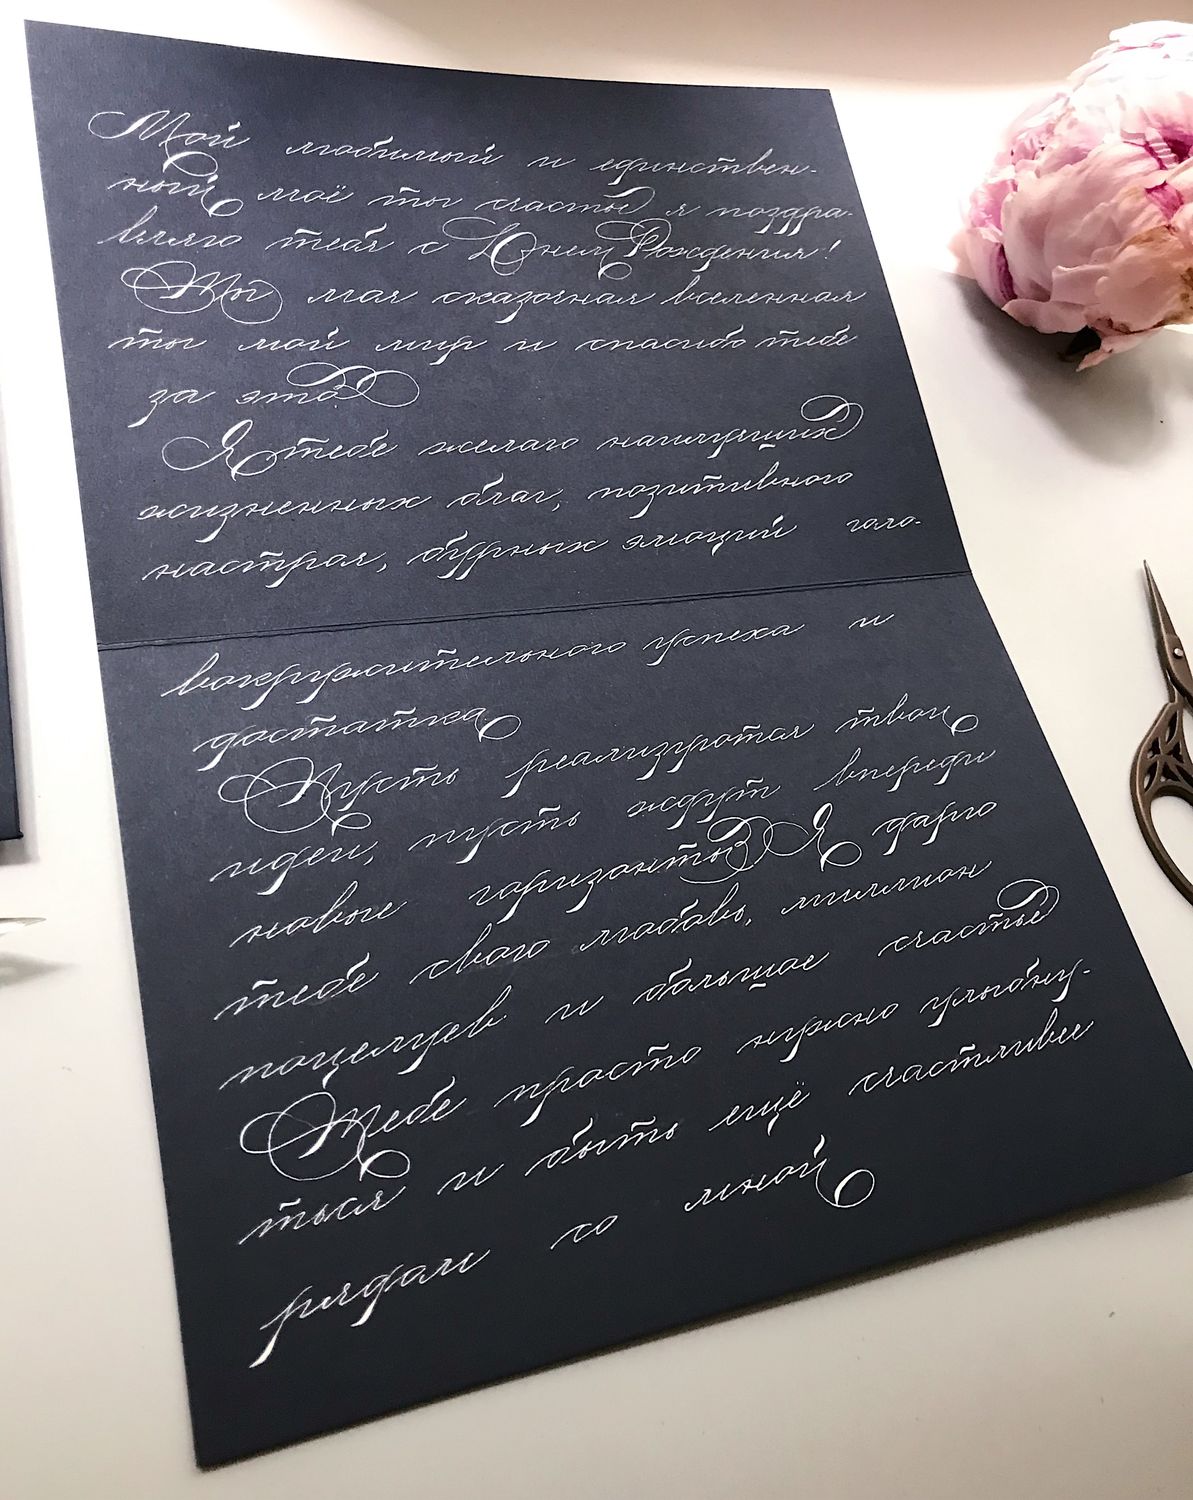 Мой любимый и единствен-
ный моё ты счастье я поздра-
вляю тебя с Днем Рождения!
Ты моя сказочная вселенная
ты мой мир и спасибо тебе
за это
Я тебе желаю наилучших
жизненных благ, позитивного
настроя, бурных эмоций голо-
вокружительного успеха и
достатка
Пусть реализуются твои
идеи, пусть ждут впереди
новые горизонты Я дарю
тебе свою любовь, миллион
поцелуев и большое счастье
Тебе просто нужно улыбну-
ться и быть ещё счастливее
рядом со мной